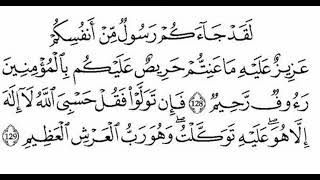 لَقَدْ جَآءَكُمْ رَسُولٌ مِّنْ أَنفُسِكُمْ
عَزِيزٌ عَلَيْهِ مَا عَنِتُّمْ حَرِيصٌ عَلَيْكُم بِالْمُؤْمِنِينَ
رَءُوفٌ رَّحِيمٌ ١٢٨ فَإِن تَوَلَّوْا۟ فَقُلْ حَسْبِىَ ٱللَّهُ لَآ إِلَٰهَ
إِلَّا هُوَ ۖ عَلَيْهِ تَوَكَّلْتُ ۖ وَهُوَ رَبُّ ٱلْعَرْشِ ٱلْعَظِيمِ ١٢٩